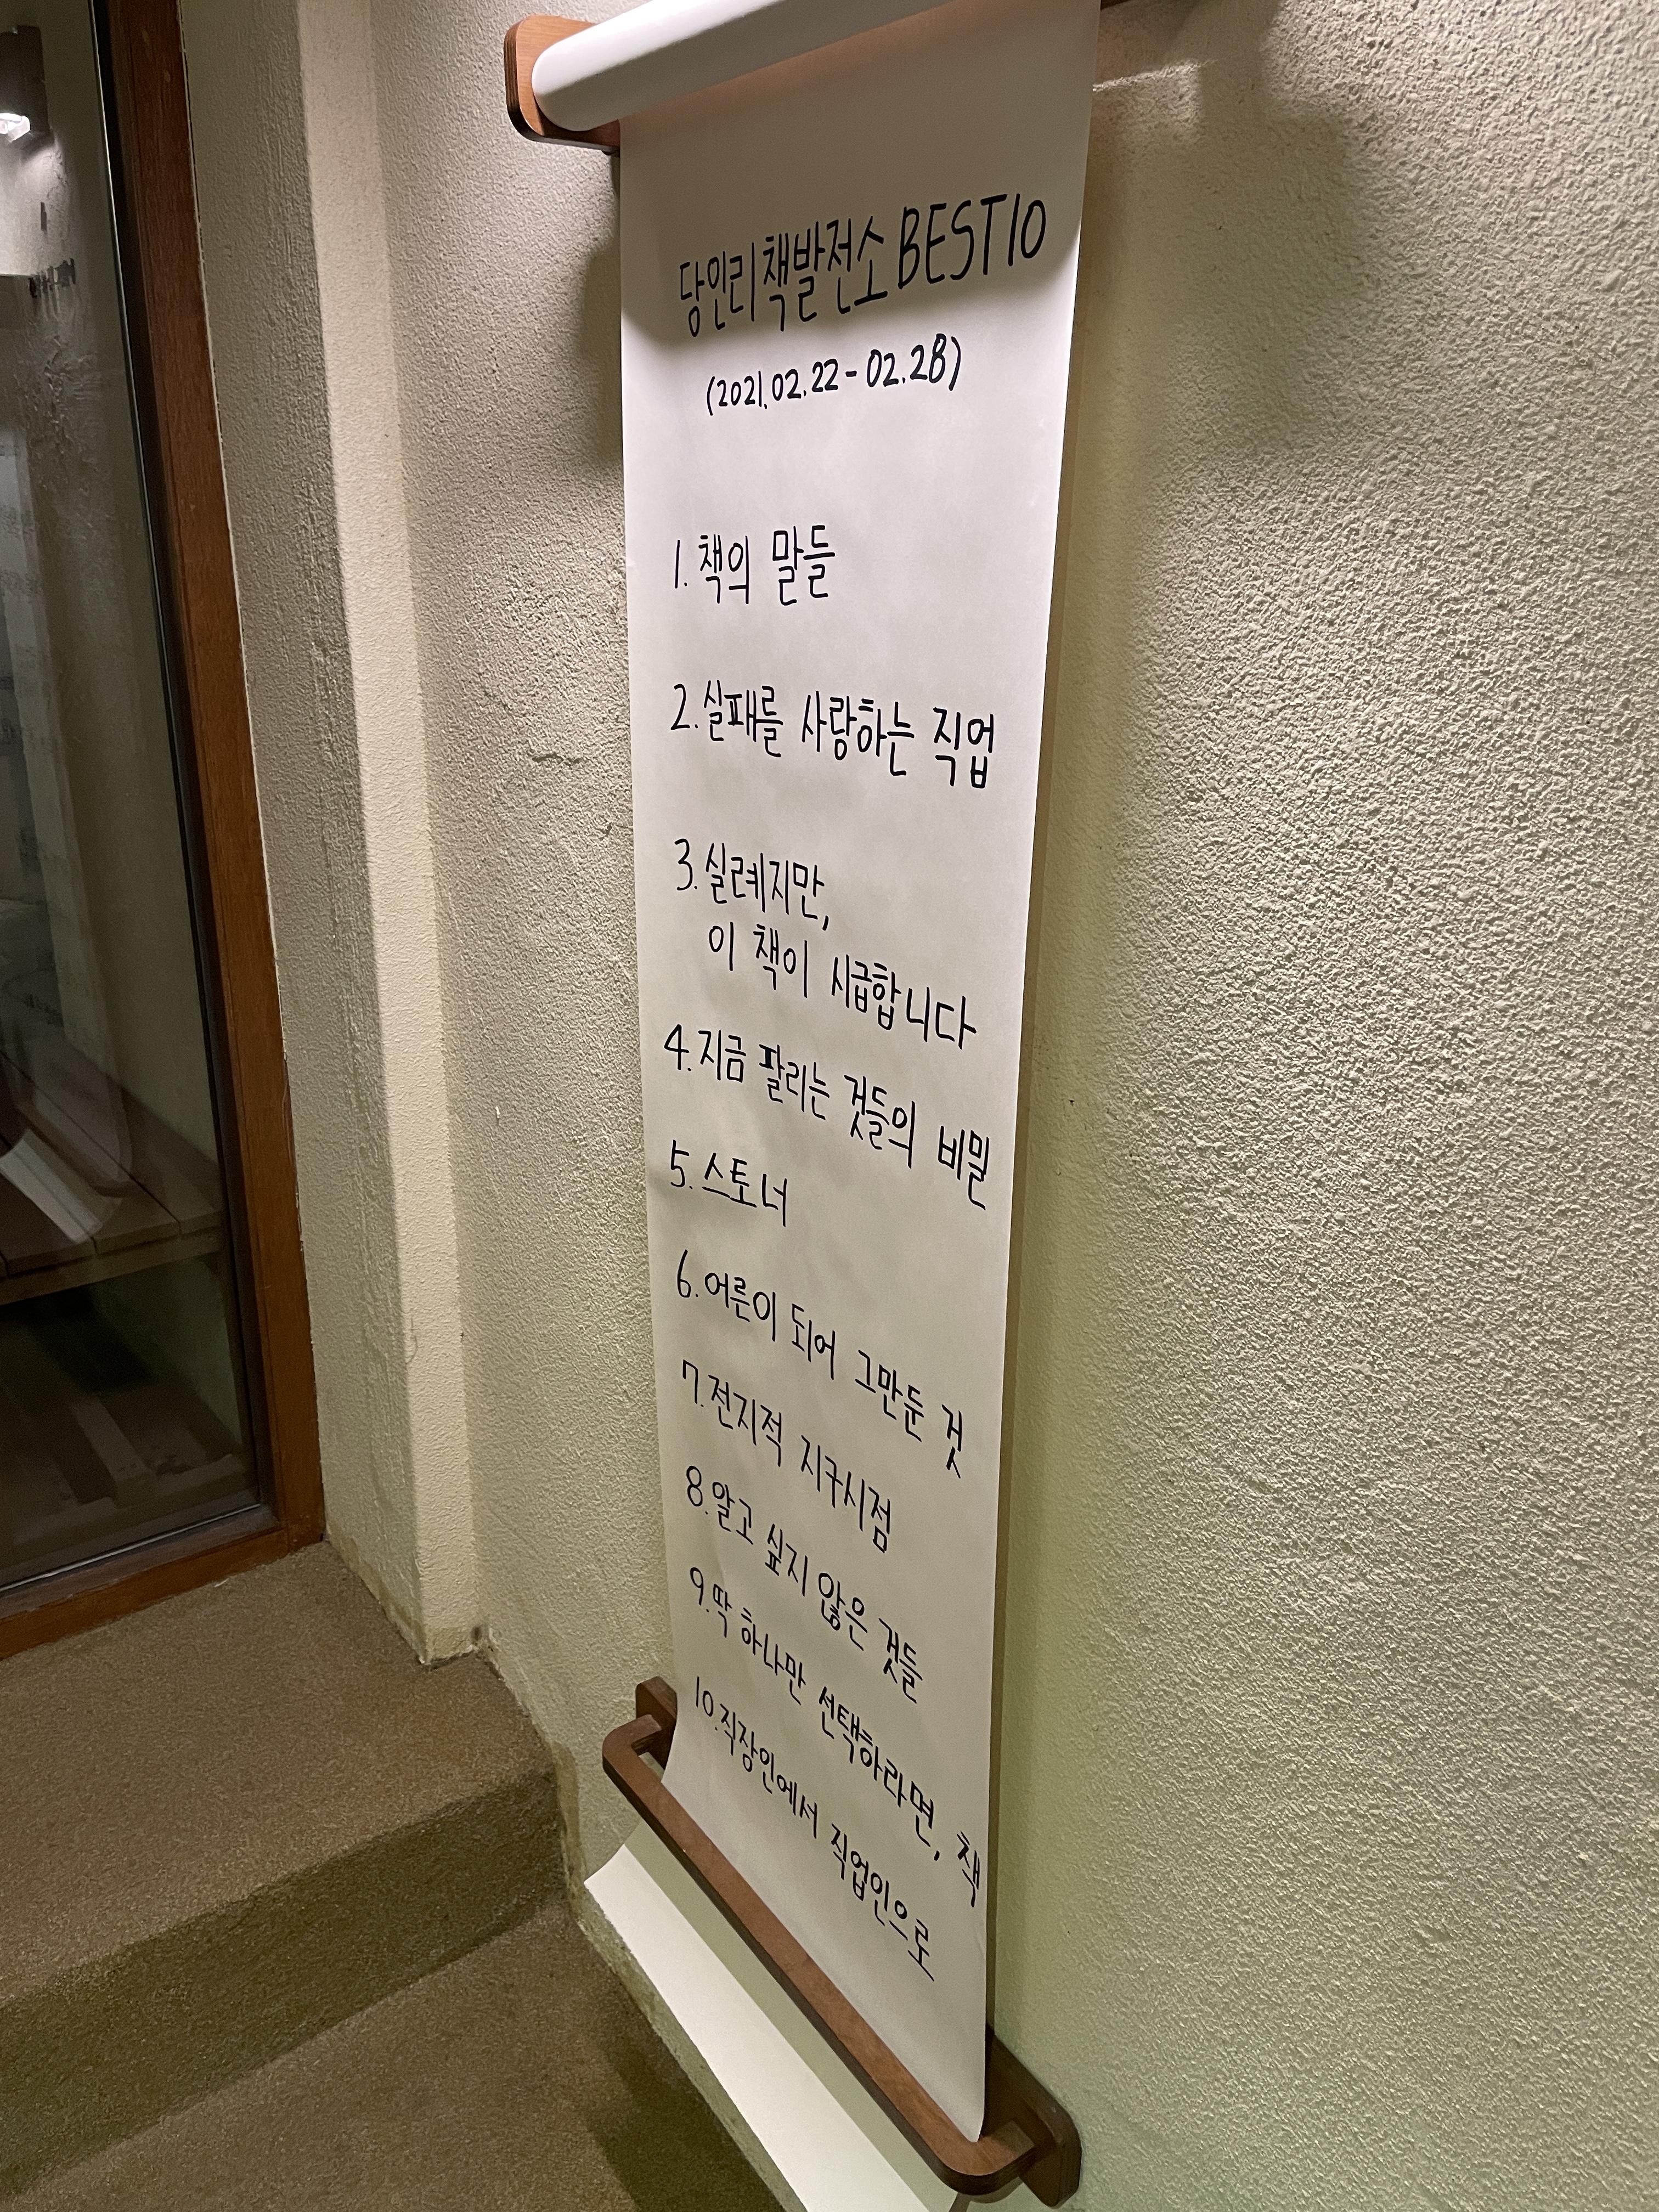 당인리책발전소 BEST10
(2021.02.22-02.28)
1. 책의 말들
2. 실패를 사랑하는 직업
3. 실례지만,
이 책이 시급합니다
4. 지금 팔리는 것들의 비밀
5. 스토너
6. 어른이 되어 그만둔 것
7. 전지적 지구시점
8. 알고 싶지 않은 것들
9. 딱 하나만 선택하라면, 책
10. 직장인에서 직업인으로